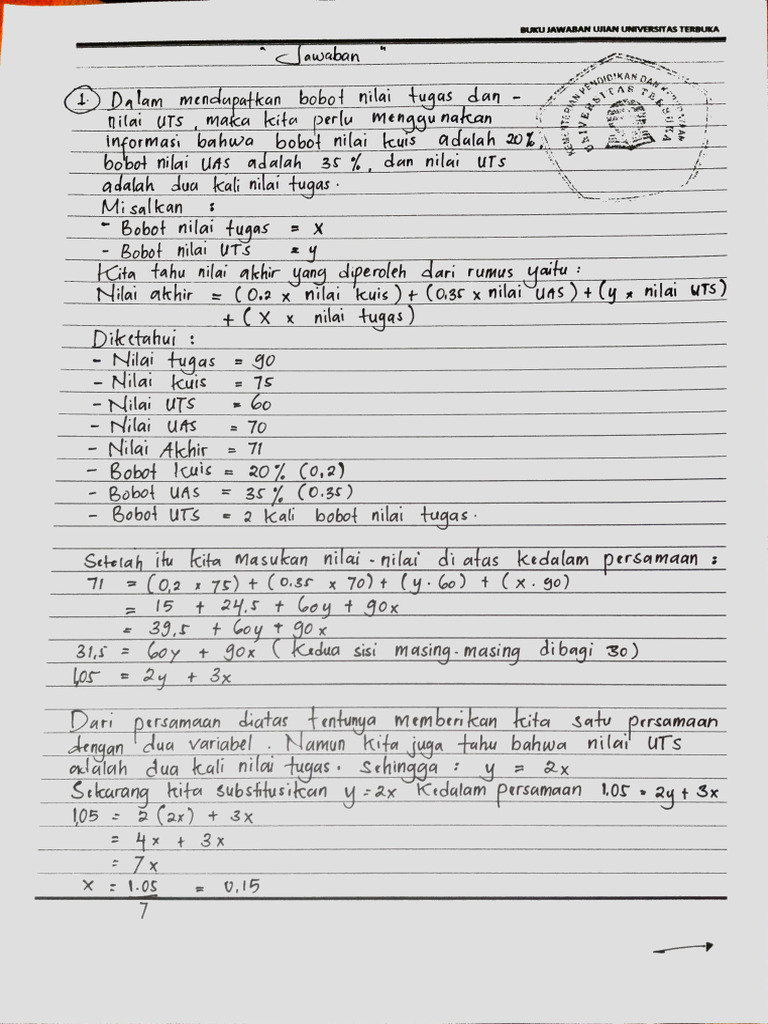 BUKU JAWABAN UJIAN UNIVERSITAS TERBUKA
" Jawaban "
KEMENTERIAN PENDIDIKAN DAN KEBUDAYAAN
UNIVERSITAS TERBUKA
1. Dalam mendapatkan bobot nilai tugas dan -
nilai UTS, maka kita perlu menggunakan
informasi bahwa bobot nilai kuis adalah 20%,
bobot nilai UAS adalah 35 %, dan nilai UTS
adalah dua kali nilai tugas.
Misalkan :
- Bobot nilai tugas = X
- Bobot nilai UTS = y
Kita tahu nilai akhir yang diperoleh dari rumus yaitu :
Nilai akhir = (0.2 x nilai kuis) + (0.35 x nilai UAS) + (y x nilai UTS)
+ ( X x nilai tugas)
Diketahui :
- Nilai tugas = 90
- Nilai kuis = 75
- Nilai UTS = 60
- Nilai UAS = 70
- Nilai Akhir = 71
- Bobot kuis = 20% (0,2)
- Bobot UAS = 35% (0.35)
- Bobot UTS = 2 kali bobot nilai tugas.
Setelah itu kita masukan nilai-nilai di atas kedalam persamaan :
71 = (0,2 x 75) + (0.35 x 70) + (y . 60) + (x . 90)
= 15 + 24,5 + 60y + 90x
= 39,5 + 60y + 90x
31,5 = 60y + 90x ( Kedua sisi masing-masing dibagi 30)
1,05 = 2y + 3x
Dari persamaan diatas tentunya memberikan kita satu persamaan
dengan dua variabel. Namun kita juga tahu bahwa nilai UTS
adalah dua kali nilai tugas. Sehingga : y = 2x
Sekarang kita substitusikan y = 2x kedalam persamaan 1.05 = 2y + 3x
1,05 = 2 (2x) + 3x
= 4x + 3x
= 7x
x = 1.05 = 0,15
7